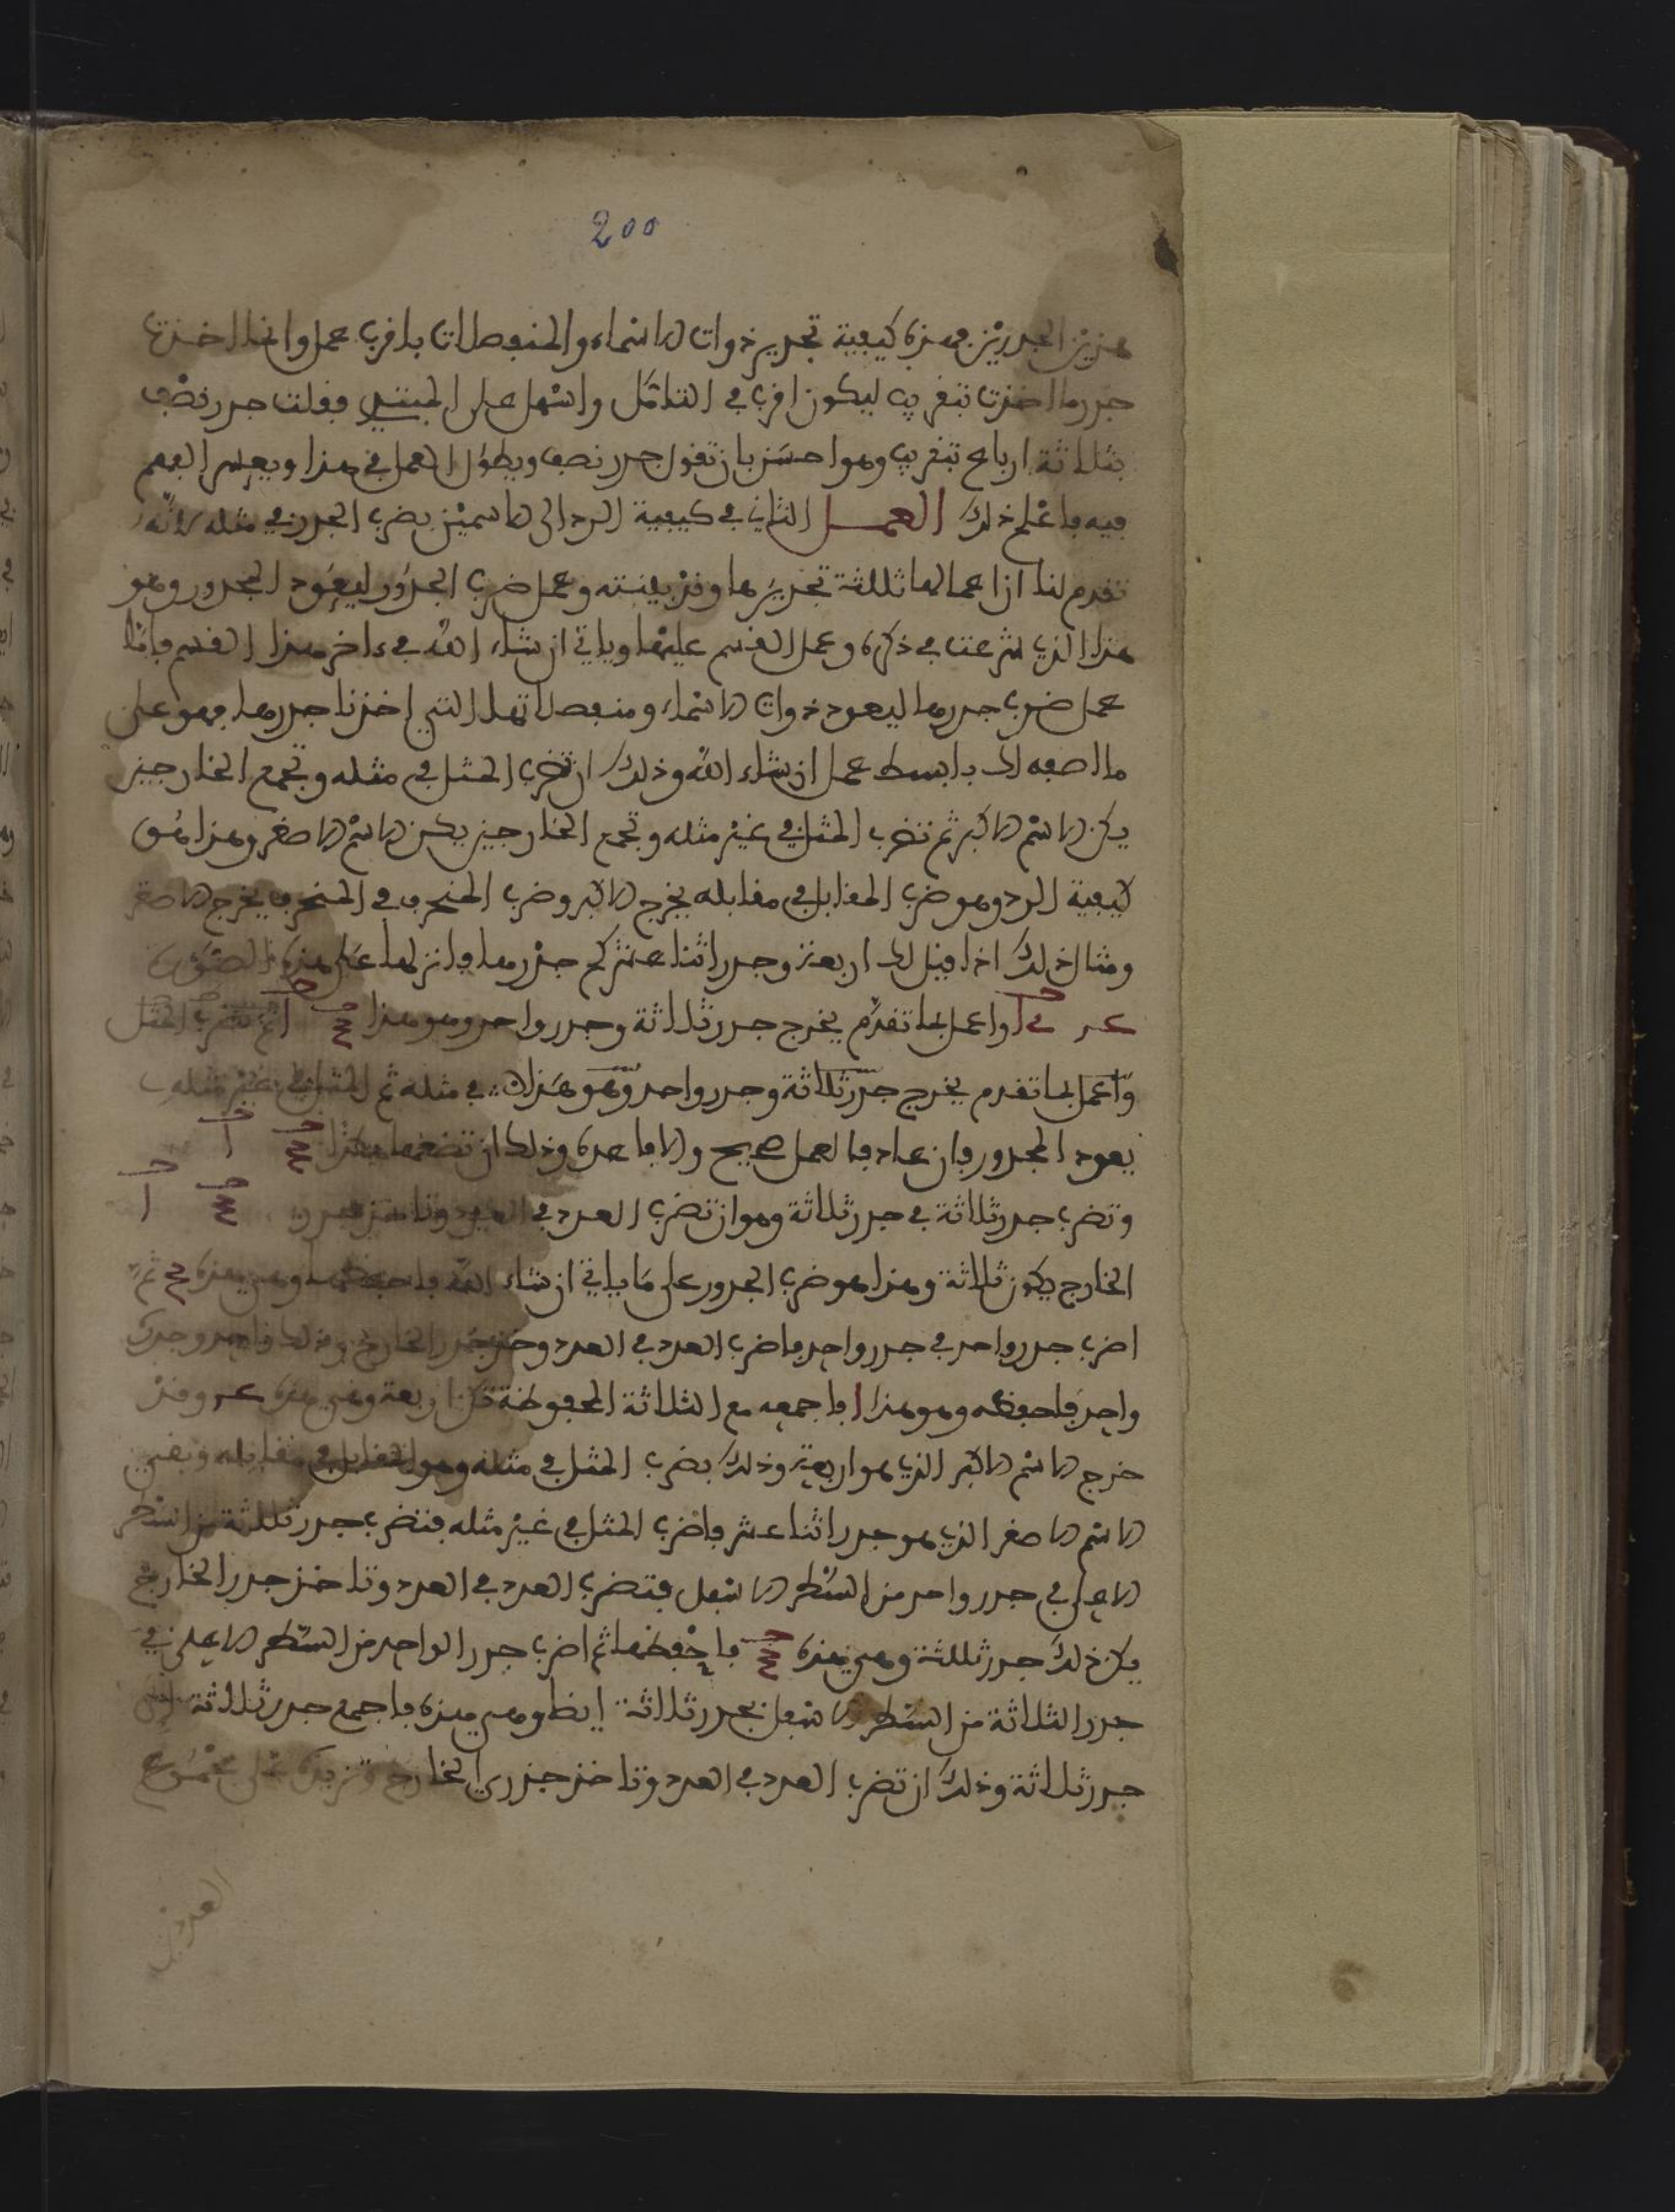 200
هذين الجدرين فهذه كيفية تجدير ذوات الاسماء والمنفصلات باقرب عمل وانما اخذت
جدر ما اخذت بتقريب ليكون اقرب في التامّل واسهل على المبتدي فقلت جدر نصف
بثلاثة ارباع بتقريب وهو احسن بان تقول جدر نصف ويطول العمل في هذا ويعسر الفهم
فيه فاعلم ذلك العمل الثاني في كيفية الرد الى الاسمين بضرب الجدر في مثله لانّه
تقدم لنا ان اعمالها ثلثة تجديرها وقد بينته وعمل ضرب الجدور ليعود المجدور وهو
هذا الذي شرعت في ذكره وعمل القسم عليها وياتي ان شاء الله في ءاخر هذا القسم فامّا
عمل ضرب جدرها ليعود ذوات الاسماء ومنفصلاتها التي اخذنا جدرها فهو على
ما اصفه لك بابسط عمل ان شاء الله وذلك ان تضرب المثل في مثله وتجمع الخارجين
يكن الاسم الاكبر ثم تضرب المثل في غير مثله وتجمع الخارجين يكن الاسم الاصغر وهذا هو
كيفية الرد وهو ضرب المقابل في مقابله يخرج الاكبر وضرب المنحرف في المنحرف يخرج الاصغر
ومثال ذلك اذا قيل لك اربعة وجدر اثنا عشر كم جذرها فانزلها على هذه الصورة
واعمل بما تقدّم يخرج جدر ثلاثة وجدر واحد وهو هذا ثم تضرب المثل
واعمل بما تقدم يخرج جدر ثلاثة وجدر واحد وهو هذا في مثله ثم المثل في غير مثله
يعود المجدور فان عاد فالعمل صحيح والا فاعده وذلك ان تضعها هكذا
وتضرب جدر ثلاثة في جدر ثلاثة وهو ان تضرب العدد في العدد وتاخذ جدر
الخارج يكون ثلاثة وهذا هو ضرب الجدور على ما ياتي ان شاء الله فاحفظها وهي هذه ثم
اضرب جدر واحد في جدر واحد فاضرب العدد في العدد وخذ جدر الخارج وذلك واحد وجدره
واحد فاحفظه وهو هذا ا فاجمعه مع الثلاثة المحفوظة تكن اربعة وهي هذه وقد
خرج الاسم الاكبر الذي هو اربعة وذلك بضرب المثل في مثله وهو المقابل في مقابله وبقي
الاسم الاصغر الذي هو جدر اثنا عشر فاضرب المثل في غير مثله فتضرب جدر ثلثة من السطر
الاعلى في جدر واحد من السطر الاسفل فتضرب العدد في العدد وتاخذ جدر الخارج
يكن ذلك جدر ثلثة وهي هذه فاحفظها ثم اضرب جدر الواحد من السطر الاعلى في
جدر الثلاثة من السطر الاسفل بجدر ثلاثة ايظا وهي هذه فاجمع جدر ثلاثة الى
جدر ثلاثة وذلك ان تضرب العدد في العدد وتاخذ جذري الخارج وتزيده على مجموع
العددين